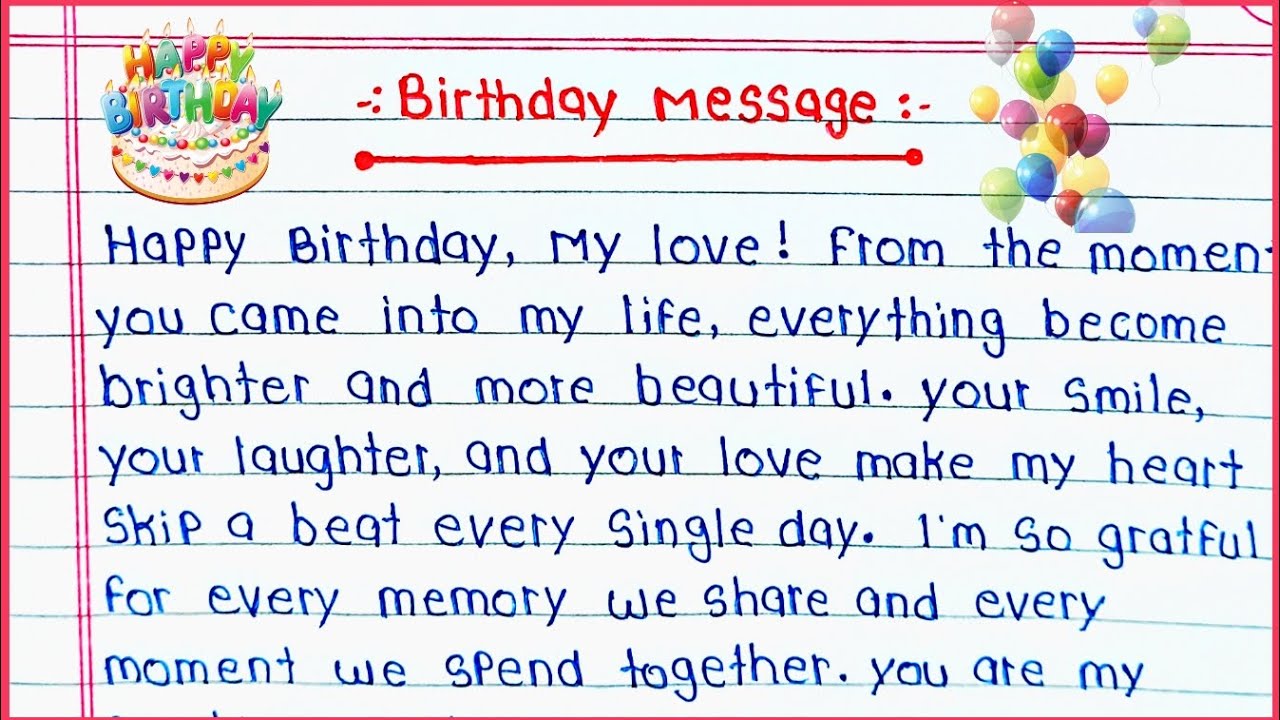 HAPPY
BIRTHDAY
-: Birthday Message :-
Happy Birthday, My love! From the momen
you came into my life, everything become
brighter and more beautiful. your smile,
your laughter, and your love make my heart
skip a beat every single day. I'm so gratful
for every memory we share and every
moment we spend together. you are my